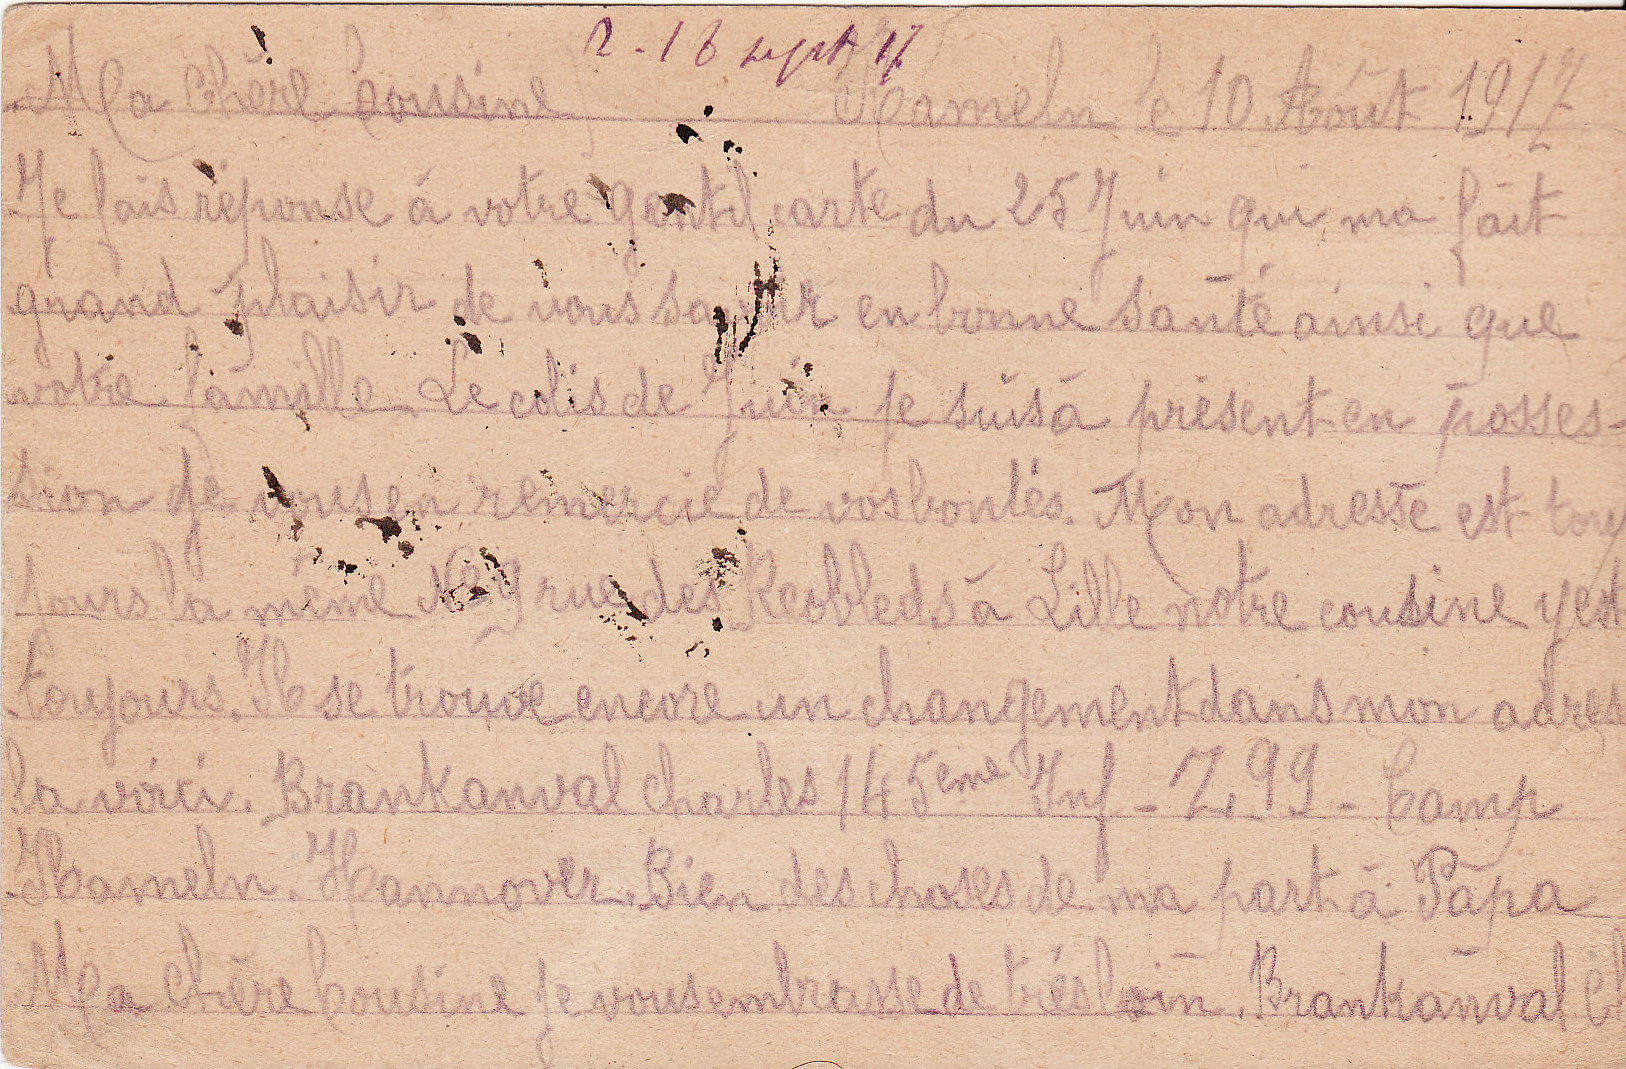 2 - 18 sept 17
Ma chère Cousine Hameln le 10 Août 1917
Je fais réponse á votre gentil carte du 25 Juin qui ma fait
grand plaisir de vous savoir en bonne santé ainsi que
votre famille. Le colis de Juin je suis á présent en posses-
sion je vous en remercie de vos bontés. Mon adresse est tou
jours la même No 9 rue des à Lille notre cousine y est
toujours. Il se trouve encore un changement dans mon adres
la voici. Brankanval Charles 145eme Inf - Z. 99 - Camp
Hameln. Hannover. Bien des choses de ma part á Papa
Ma Chère Cousine je vous embrasse de trés loin. Brankanval Ch